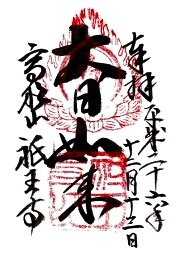 奉拝 平成二十六年
十二月十三日
大日如来
高野山 祇王寺